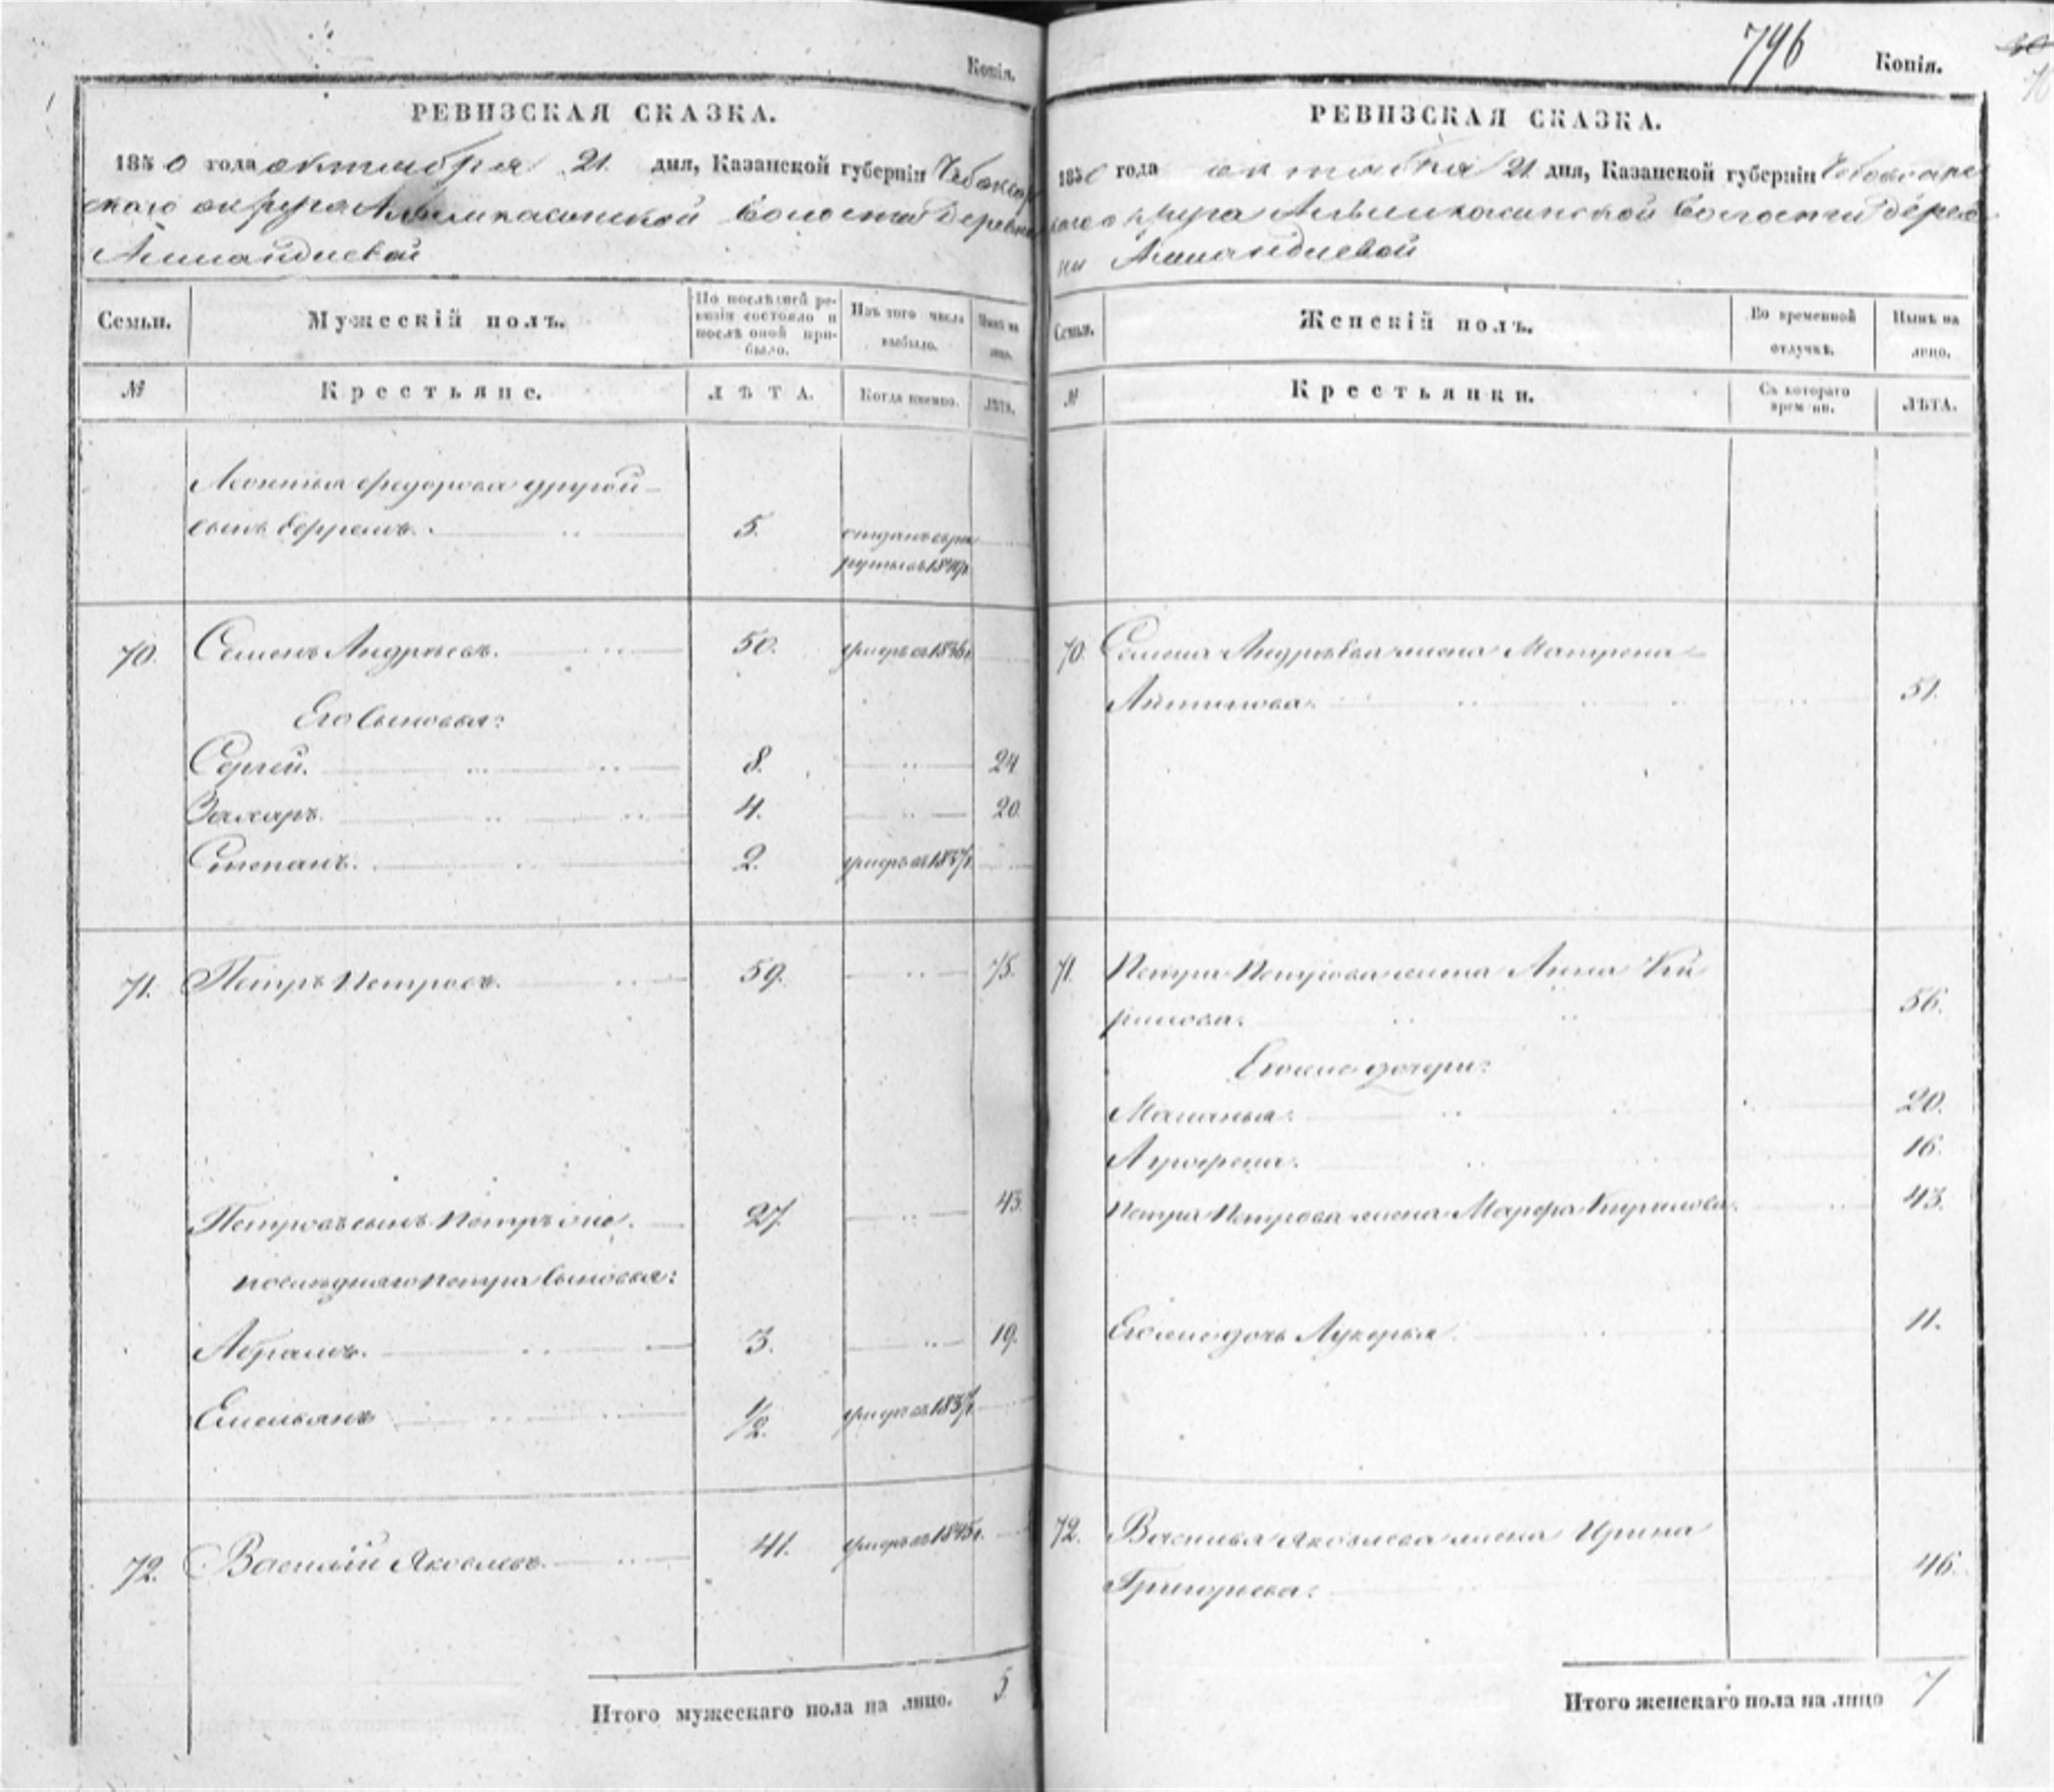 Копія.
РЕВИЗСКАЯ СКАЗКА.
1850 года октября 21 дня, Казанской губерніи Чебоксар
скаго округа Алымкасинской волости деревни
Семьи.
Мужескій полъ.
По послѣдней ре-
визіи состояло и
послѣ оной при-
было.
Изъ того числа
выбыло.
Нынѣ на
лицо.
№
Крестьяне.
ЛѢТА.
Когда именно.
ЛѢТА.
Леонтья Федорова другой
сынъ Ефремъ. 5. отданъ въ рек
руты въ
70. Семенъ Андреевъ. 50. умеръ въ 1836г
Его сыновья:
Сергей. 8. 24
Захаръ. 4. 20
Степанъ. 2. умеръ въ 1837г
71. Петръ Петровъ. 59. 75.
Петровъ сынъ Петръ же. 27. 43.
последняго Петра сыновья:
Абрамъ. 3. 19.
Емельянъ 1/2. умеръ въ 1837г
72. Василий Яковлевъ. 41. умеръ въ 1845г.
Итого мужескаго пола на лицо. 5
796
Копія.
РЕВИЗСКАЯ СКАЗКА.
1850 года октября 21 дня, Казанской губерніи Чебоксарс
каго округа Алымкасинской волости дерев
ни
Семьи.
Женскій полъ.
Во временной
отлучкѣ.
Нынѣ на
лицо.
№
Крестьянки.
Съ котораго
времени.
ЛѢТА.
70. Семена Андреева жена Матрена
51.
71. Петра Петрова жена Анна Ки
рилова. 56.
Его же дочери:
Маланья. 20.
Аграфена. 16.
Петра Петрова жена Марфа Кирилова. 43.
Его же дочь Лукерья. 11.
72. Василья Яковлева жена Ирина
Григорьева. 46.
Итого женскаго пола на лицо 7